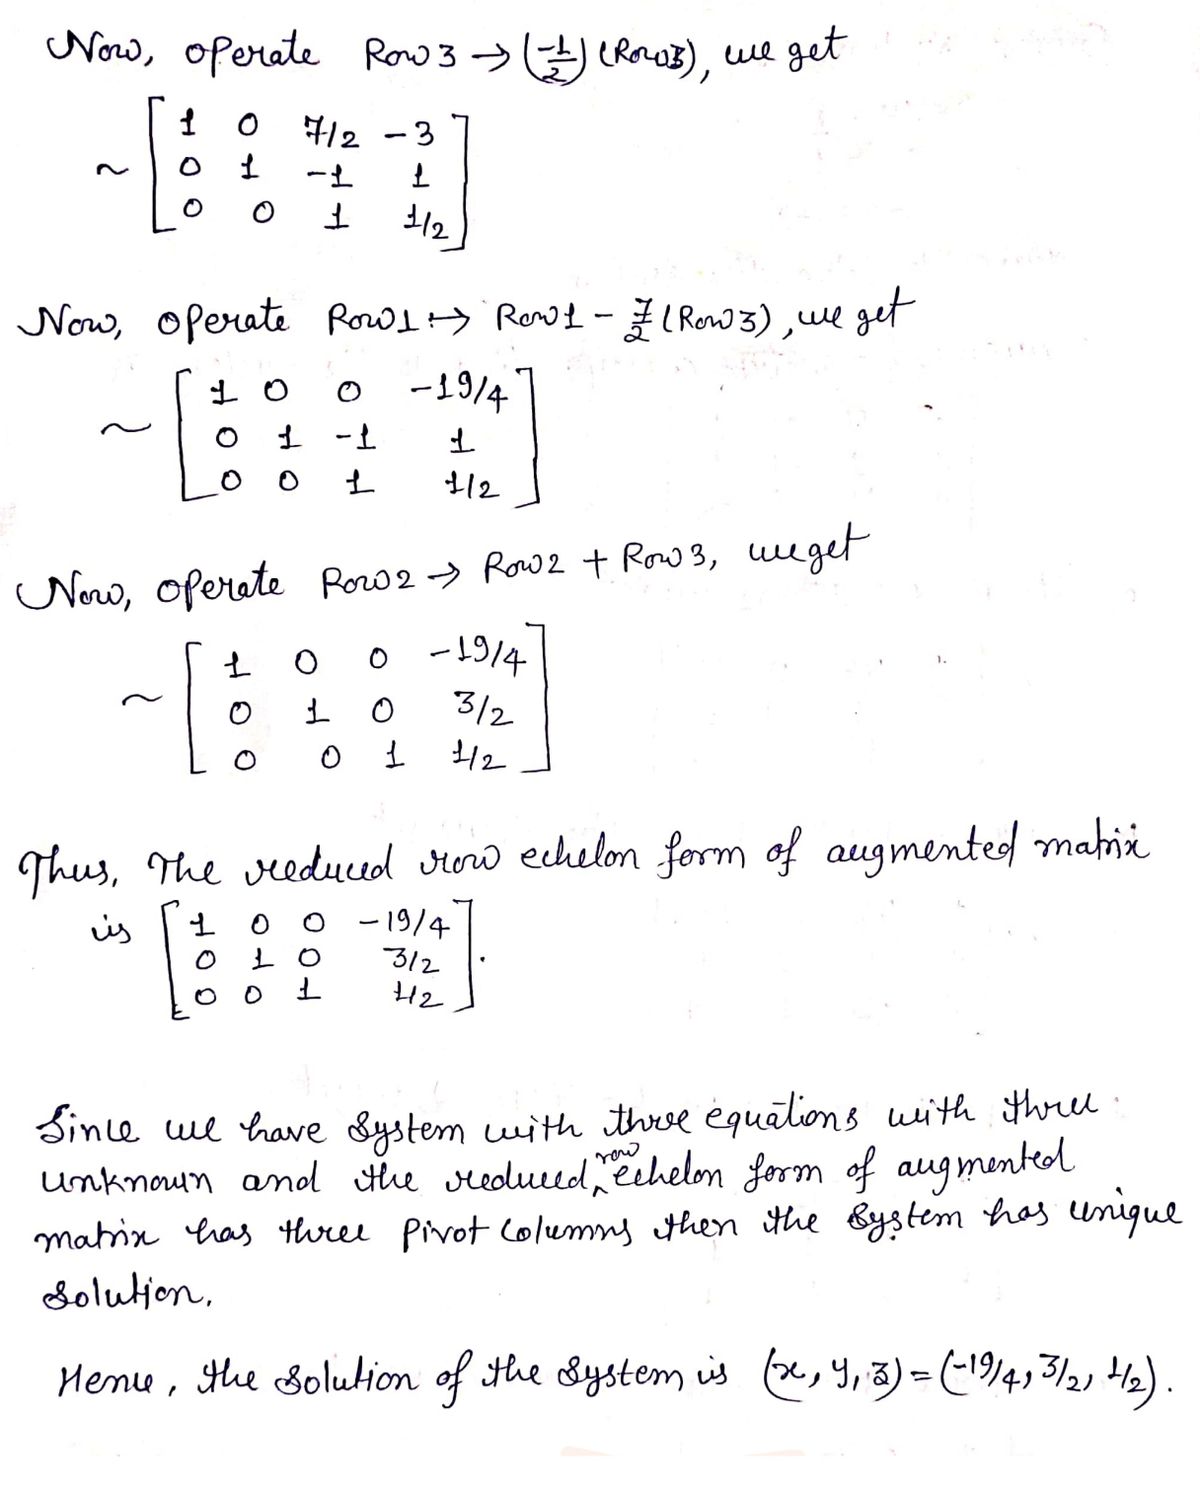 Now, operate Row 3 → (-1/2) (Row3), we get
~ [ 1 0 7/2 -3
0 1 -1 1
0 0 1 1/2 ]
Now, operate Row1 → Row1 - 7/2 (Row 3), we get
~ [ 1 0 0 -19/4
0 1 -1 1
0 0 1 1/2 ]
Now, operate Row2 → Row2 + Row 3, we get
~ [ 1 0 0 -19/4
0 1 0 3/2
0 0 1 1/2 ]
Thus, The reduced row echelon form of augmented matrix
is [ 1 0 0 -19/4
0 1 0 3/2
0 0 1 1/2 ].
Since we have system with three equations with three
unknown and the reduced row echelon form of augmented
matrix has three pivot columns then the system has unique
solution.
Hence, the solution of the system is (x, y, z) = (-19/4, 3/2, 1/2).